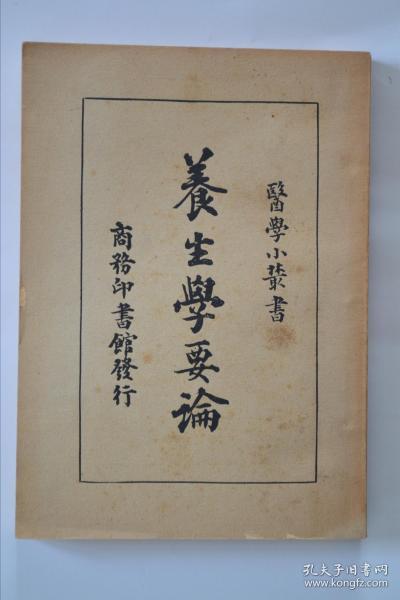 醫學小叢書
養生學要論
商務印書館發行
孔夫子旧书网
www.kongfz.com